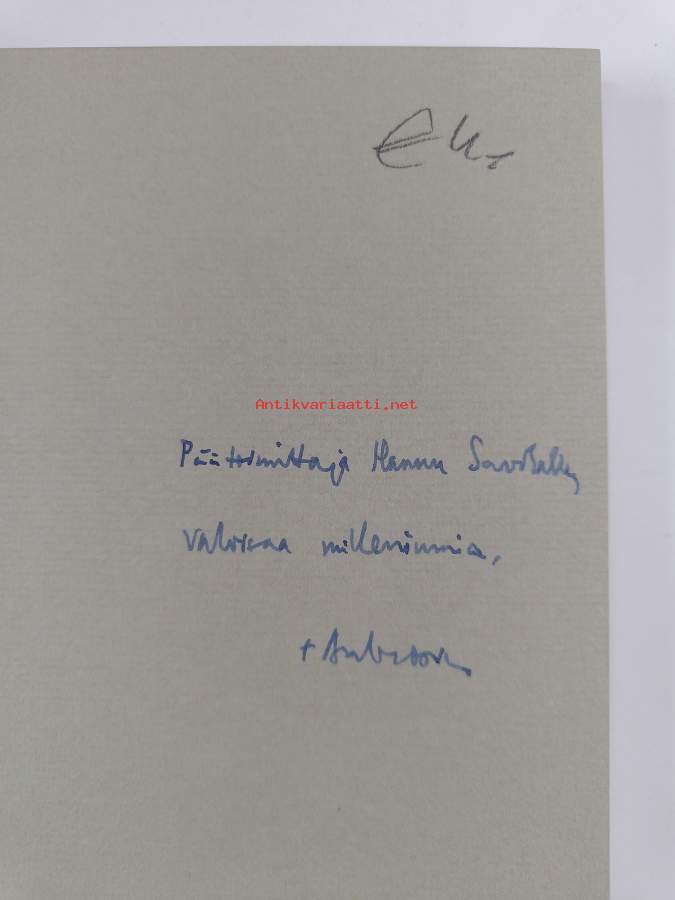 Antikvariaatti.net
Päätoimittaja Hannu Savola
Valoisaa milleniumia,
+ Ambrosius